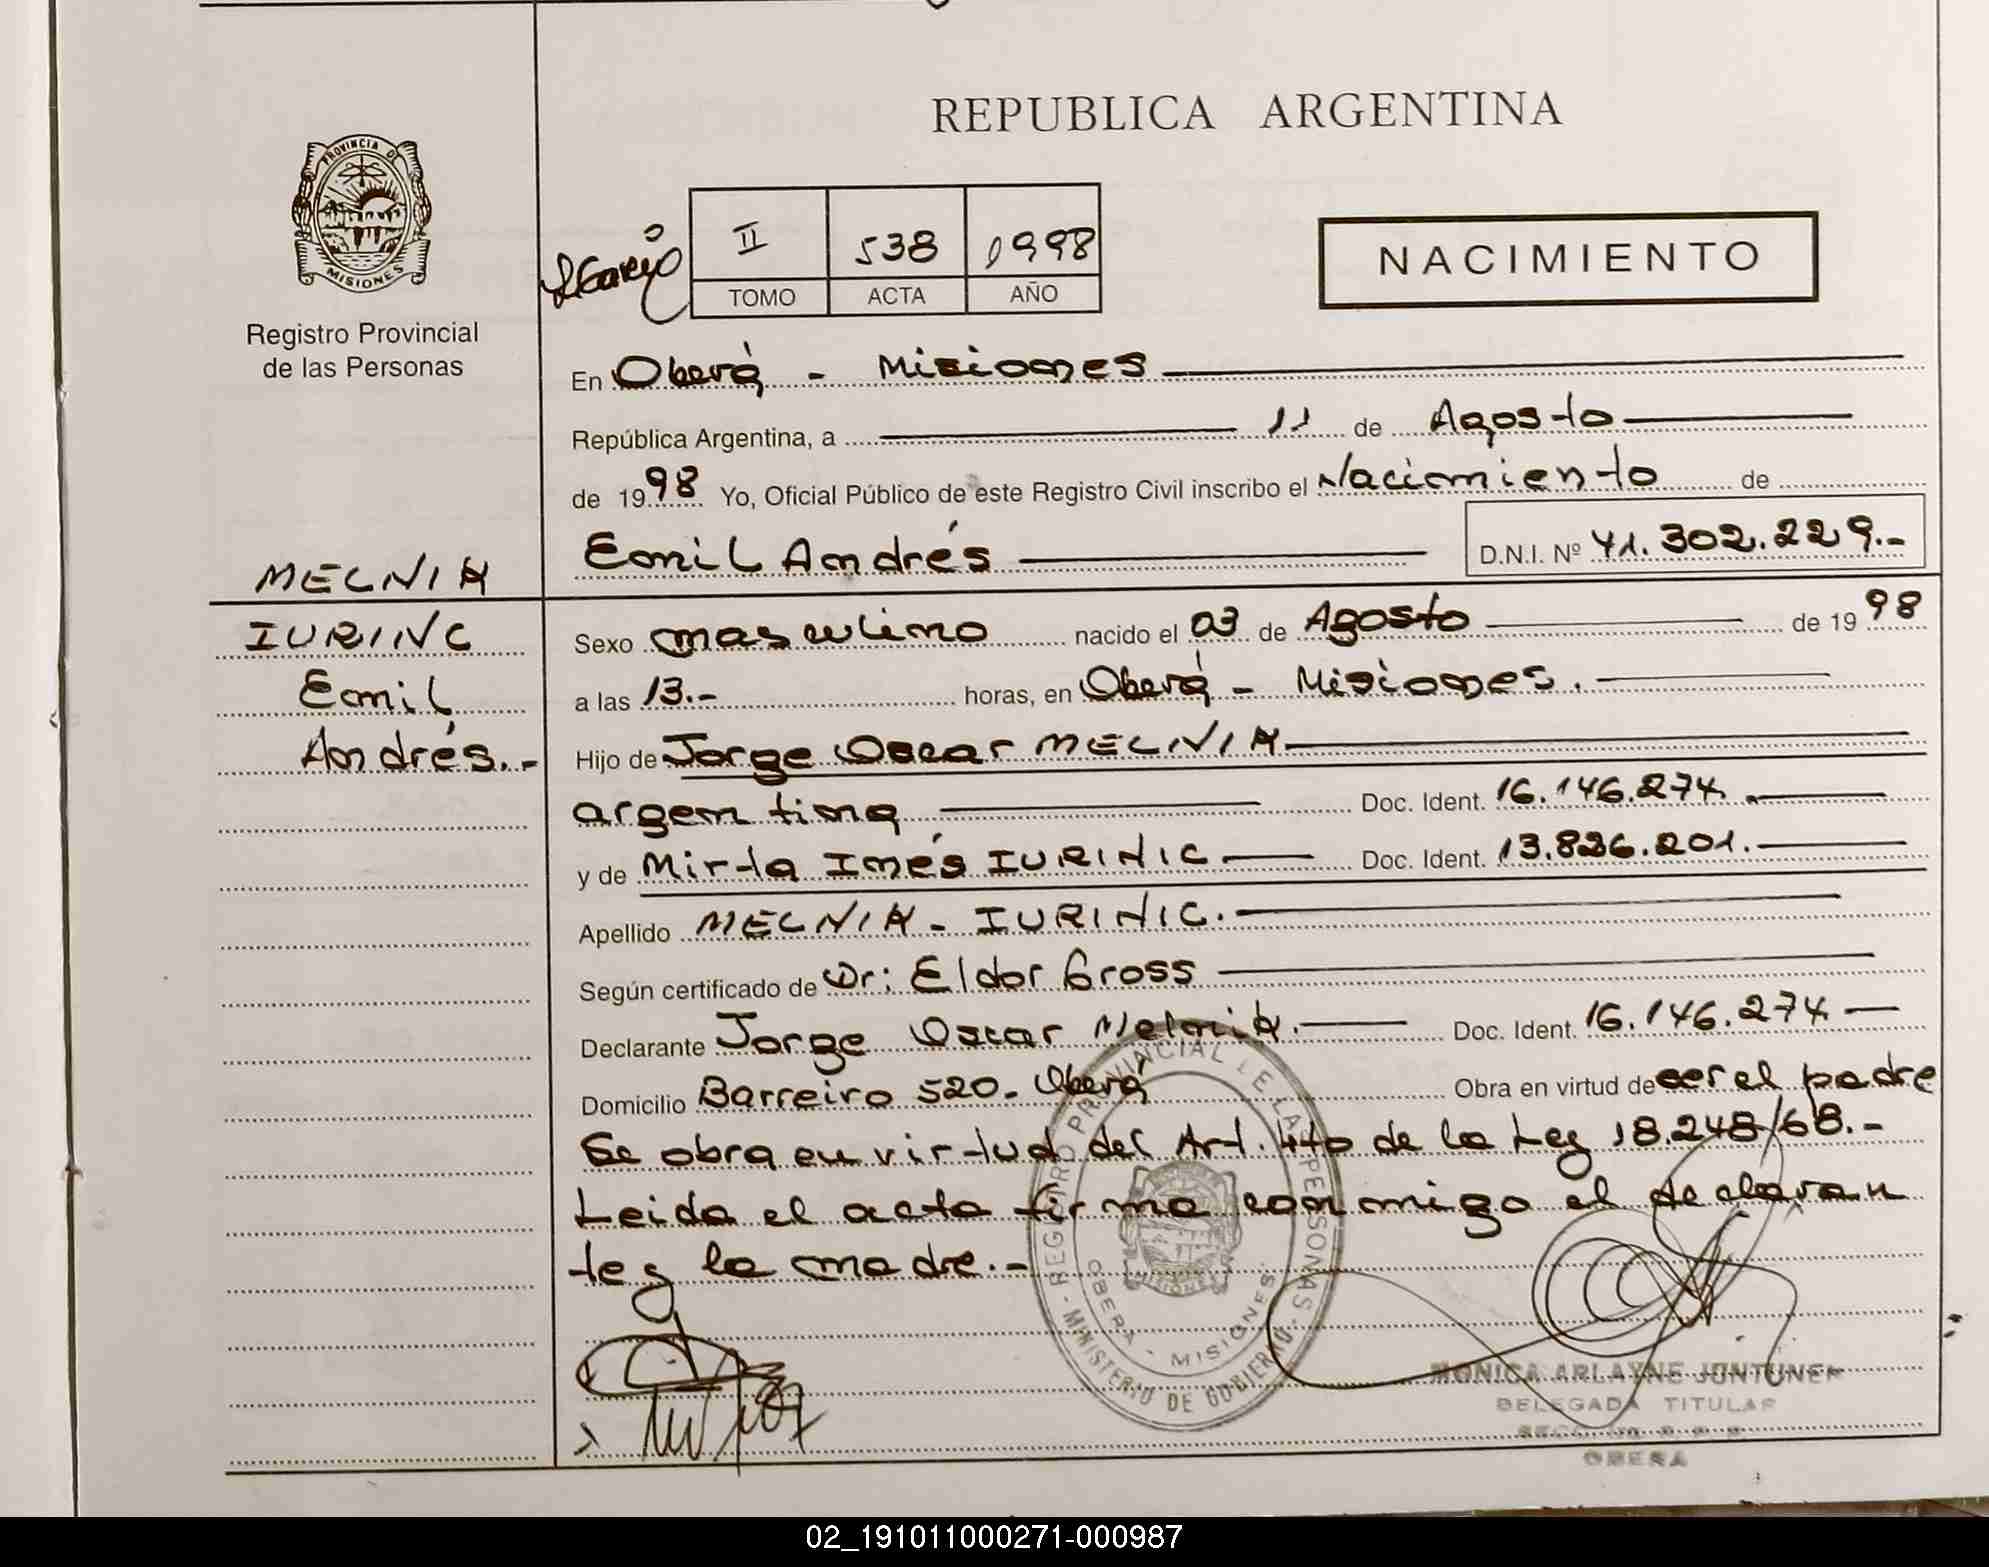 REPUBLICA ARGENTINA
PROVINCIA DE
MISIONES
Registro Provincial
de las Personas
II 538 1998
TOMO ACTA AÑO
NACIMIENTO
En Oberá - Misiones
República Argentina, a 11 de Agosto
de 1998 Yo, Oficial Público de este Registro Civil inscribo el Nacimiento de
Emil Andrés D.N.I. Nº 41.302.229.-
MELNIK
IURINIC
Emil
Andrés.-
Sexo masculino nacido el 03 de Agosto de 1998
a las 13.- horas, en Oberá - Misiones.
Hijo de Jorge Oscar MELNIK
argentina Doc. Ident. 16.146.274.
y de Mirta Inés IURINIC Doc. Ident. 13.826.201.
Apellido MELNIK - IURINIC.
Según certificado de Dr: Eldor Gross
Declarante Jorge Oscar Melnik. Doc. Ident. 16.146.274
Domicilio Barreiro 520. Oberá Obra en virtud de ser el padre
Se obra en virtud del Art. 4to de la Ley 18.248/68.-
Leida el acta firma conmigo el declaran
te y la madre.-
REGISTRO PROVINCIAL DE LAS PERSONAS
- MINISTERIO DE GOBIERNO -
OBERA - MISIONES
MISIONES
MONICA ARLAYNE JUNTUNEN
DELEGADA TITULAR
OBERA
02_191011000271-000987